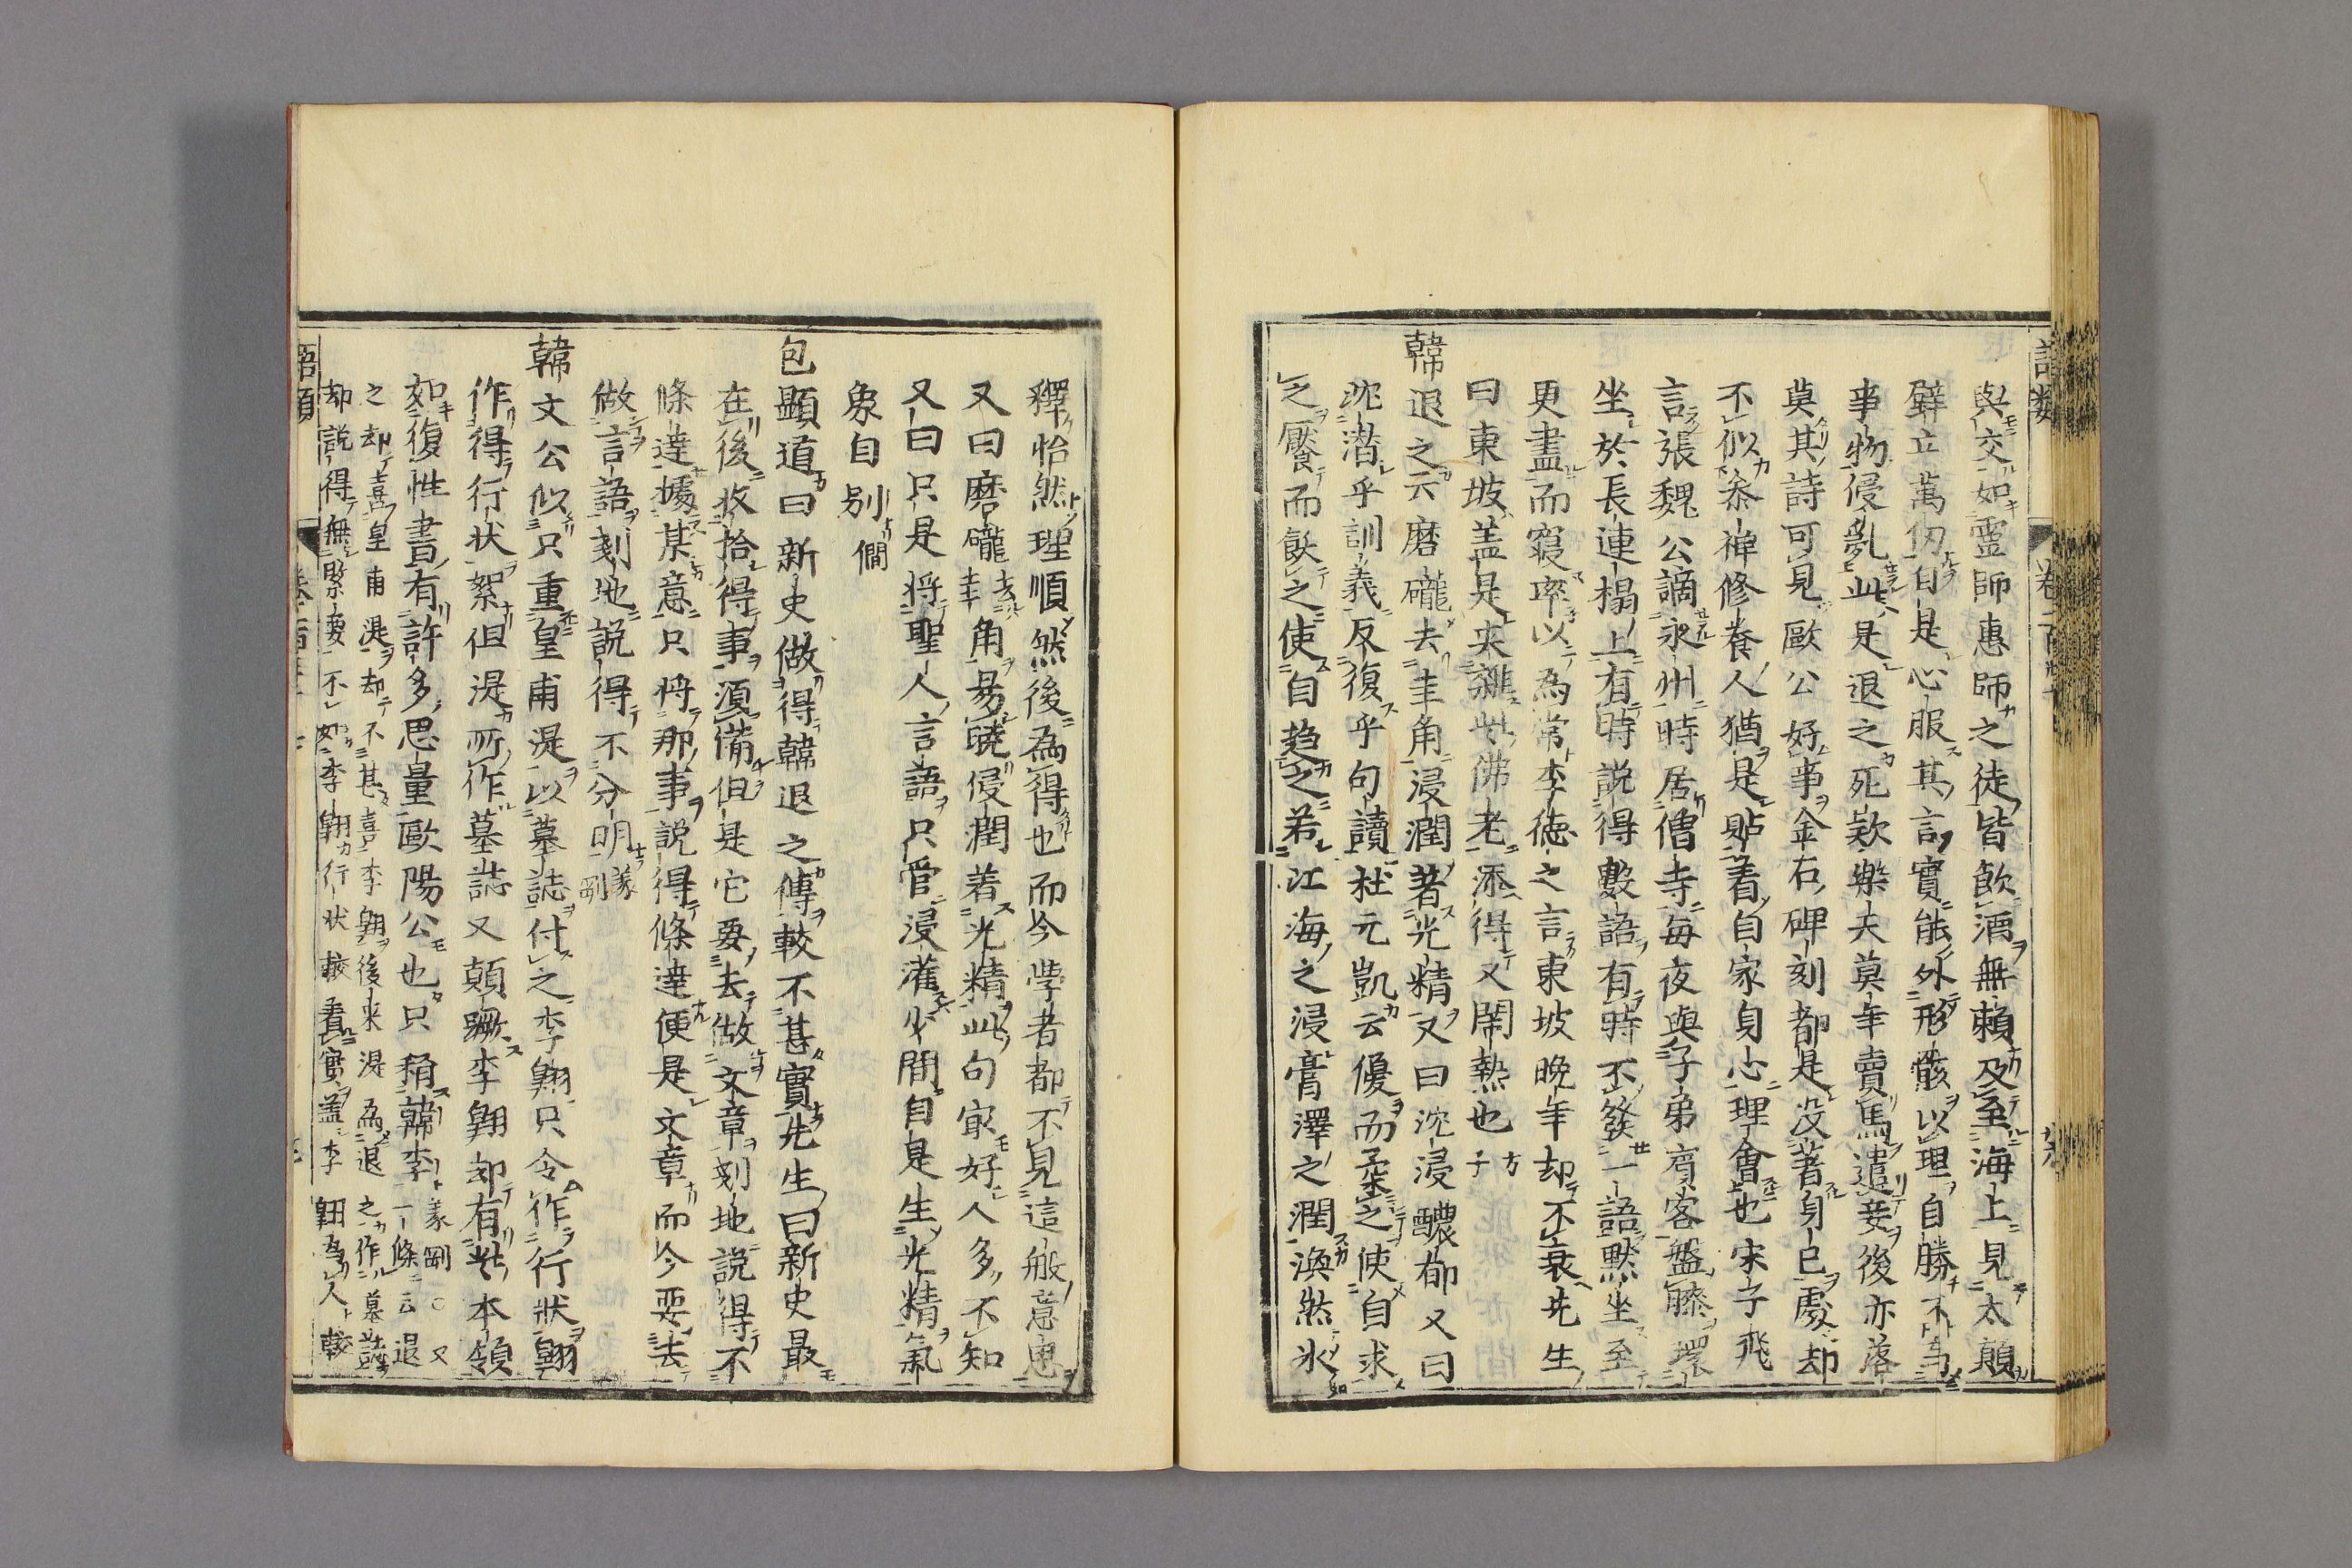 與交如靈師惠師之徒皆飲酒無賴及至海上見太顛
壁立萬仞自是心服其言實能外形骸以理自勝不為
事物侵亂此是退之死欵樂夫莫年賣馬遣妾後亦落
莫其詩可見歐公好事金石碑刻都是没著身已處却
不似叅禅修養人猶是貼着自家身心理會也宋子飛
言張魏公謫永州時居僧寺每夜與子弟賓客盤膝環
坐於長連榻上有時説得數語有時不發一語黙坐至
更盡而寢率以為常李德之言東坡晩年却不衰先生
曰東坡盖是夹雜些佛老添得又閙熱也
韓退之云磨礲去圭角浸潤著光精又曰沈浸醲郁又曰
沈潜乎訓義反復乎句讀杜元凱云優而柔之使自求
之饜而飫之使自趍之若江海之浸膏澤之潤渙然氷
釋怡然理順然後為得也而今学者都不見這般意思
又曰磨礲去圭角易曉侵潤着光精此句㝡好人多不知
又曰只是将聖人言語只管浸灌少間自是生光精氣
象自別僩
包顯道曰新史做得韓退之傳較不甚實先生曰新史最
在後收拾得事湏備但是它要去做文章刻地説得不
條達據某意只將那事説得條達便是文章而今要去
做言語刻地説得不分明義剛
韓文公似只重皇甫湜以墓誌付之李翺只令作行狀翺
作得行状絮但湜所作墓誌又顛蹶李翺却有些本領
如復性書有許多思量歐陽公也只稱韓李義剛○又一條云退
之却喜皇甫湜却不甚喜李翺後来湜為退之作墓誌
却説得無緊要不如李翺行状較着實盖李翺為人較